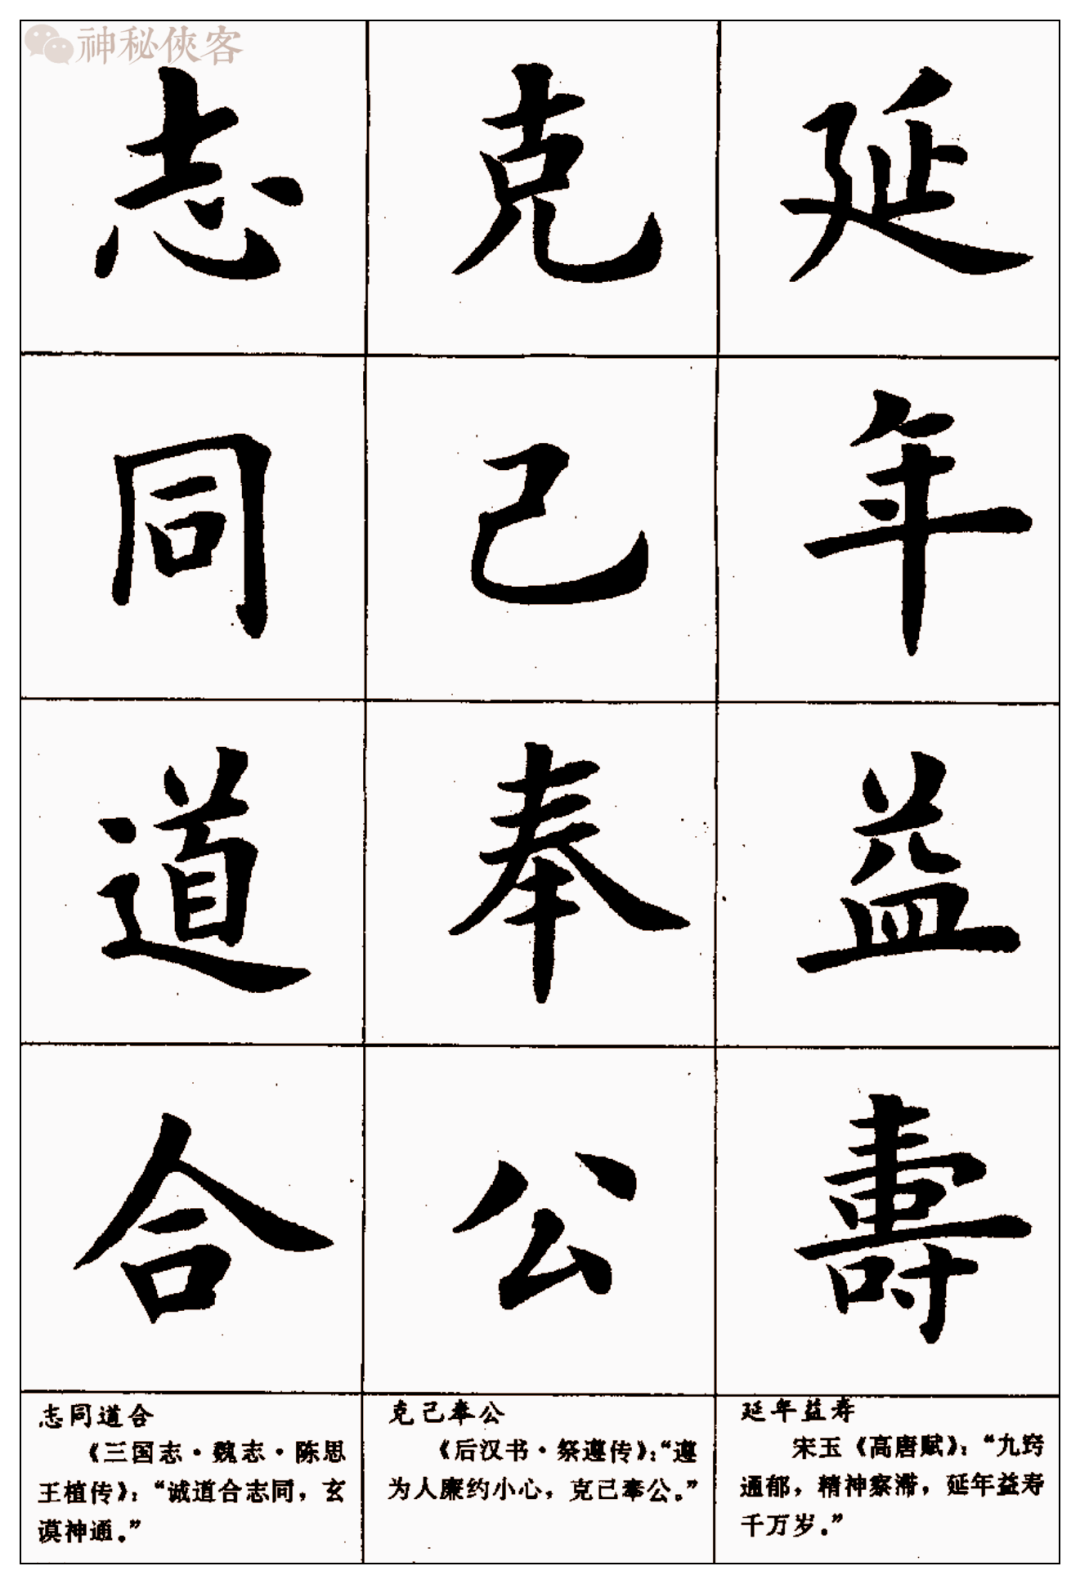 神秘侠客
延年益壽
克己奉公
志同道合
延年益寿
宋玉《高唐赋》：“九窍
通郁，精神察滞，延年益寿
千万岁。”
克己奉公
《后汉书·祭遵传》：“遵
为人廉约小心，克己奉公。”
志同道合
《三国志·魏志·陈思
王植传》：“诚道合志同，玄
谟神通。”